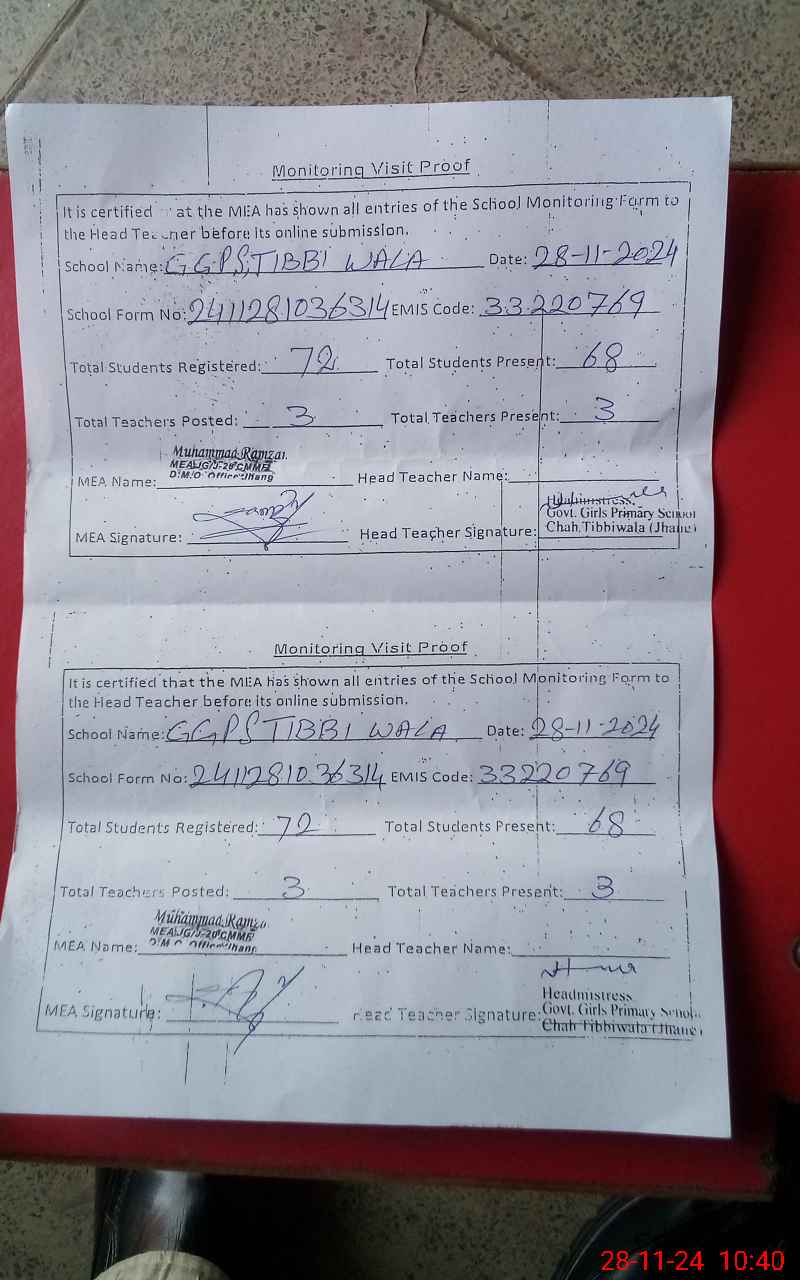 Monitoring Visit Proof
It is certified at the MEA has shown all entries of the School Monitoring Form to
the Head Teacher before its online submission.
School Name: GGPS, TIBBI WALA Date: 28-11-2024
School Form No: 2411281036314 EMIS Code: 33220769
Total Students Registered: 72 Total Students Present: 68
Total Teachers Posted: 3 Total Teachers Present: 3
Muhammad Ramzan
D.M.O Office Jhang
MEA Name: Head Teacher Name:
Headmistress
Govt. Girls Primary School
MEA Signature: Head Teacher Signature: Chah Tibbiwala (Jhang)
Monitoring Visit Proof
It is certified that the MEA has shown all entries of the School Monitoring Form to
the Head Teacher before its online submission.
School Name: GGPS TIBBI WALA Date: 28-11-2024
School Form No: 2411281036314 EMIS Code: 33220769
Total Students Registered: 72 Total Students Present: 68
Total Teachers Posted: 3 Total Teachers Present: 3
Muhammad Ramza
D.M.O Office Jhang
MEA Name: Head Teacher Name:
Headmistress
MEA Signature: Head Teacher Signature: Govt. Girls Primary School
Chah Tibbiwala (Jhang)
28-11-24 10:40